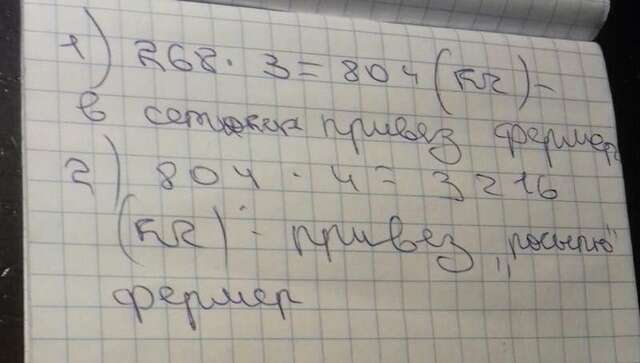 1) 268 · 3 = 804 (кг) -
в сетках привез фермер
2) 804 · 4 = 3216
(кг) - привез „россыпью"
фермер